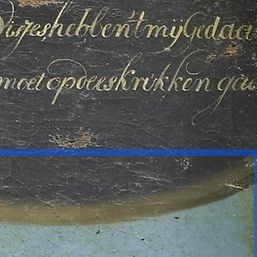 Disges hebben't mij Gedaa
moet op oerskrikken gaa